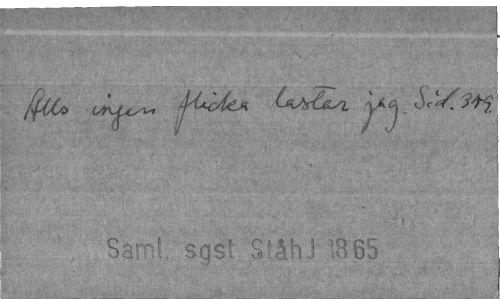 Alls ingen flicka lastar jag. Sid. 349.
Saml. sgst StåhJ 1865